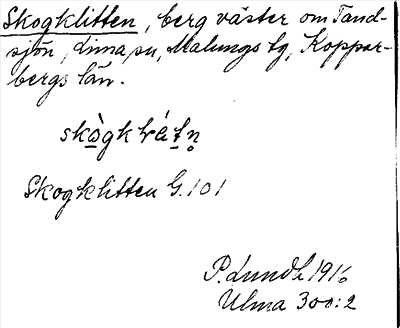 Skogklitten, berg väster om Tand-
sjön, Lima sn, Malungs tg, Koppar-
bergs län.
Skogklitten G. 101
P. Lundh 1916
Ulma 300:2